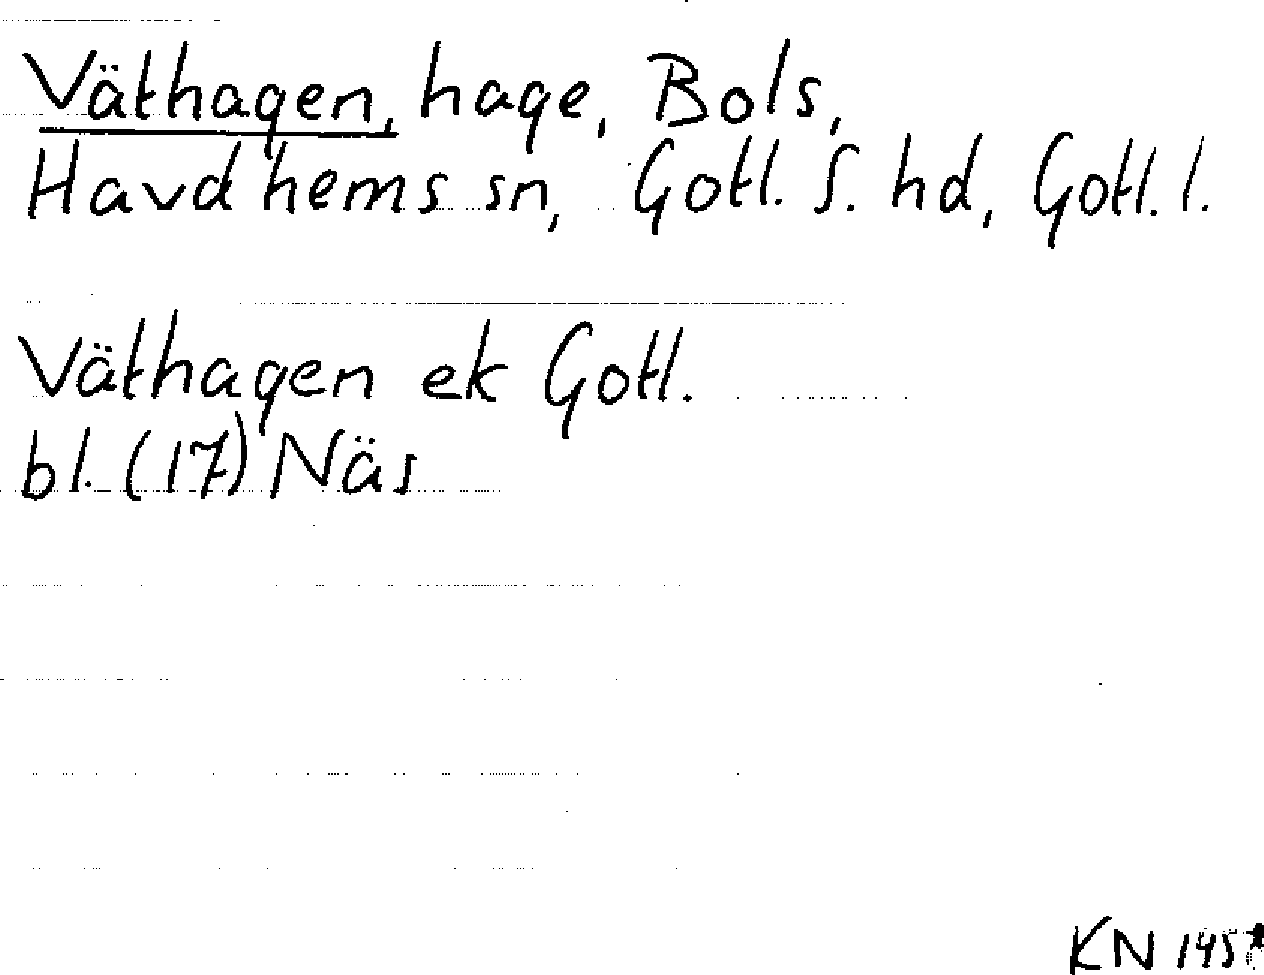 Väthagen, hage, Bols,
Havdhems sn, Gotl. S. hd, Gotl. l.
Väthagen ek Gotl.
bl. (17) Näs
KN